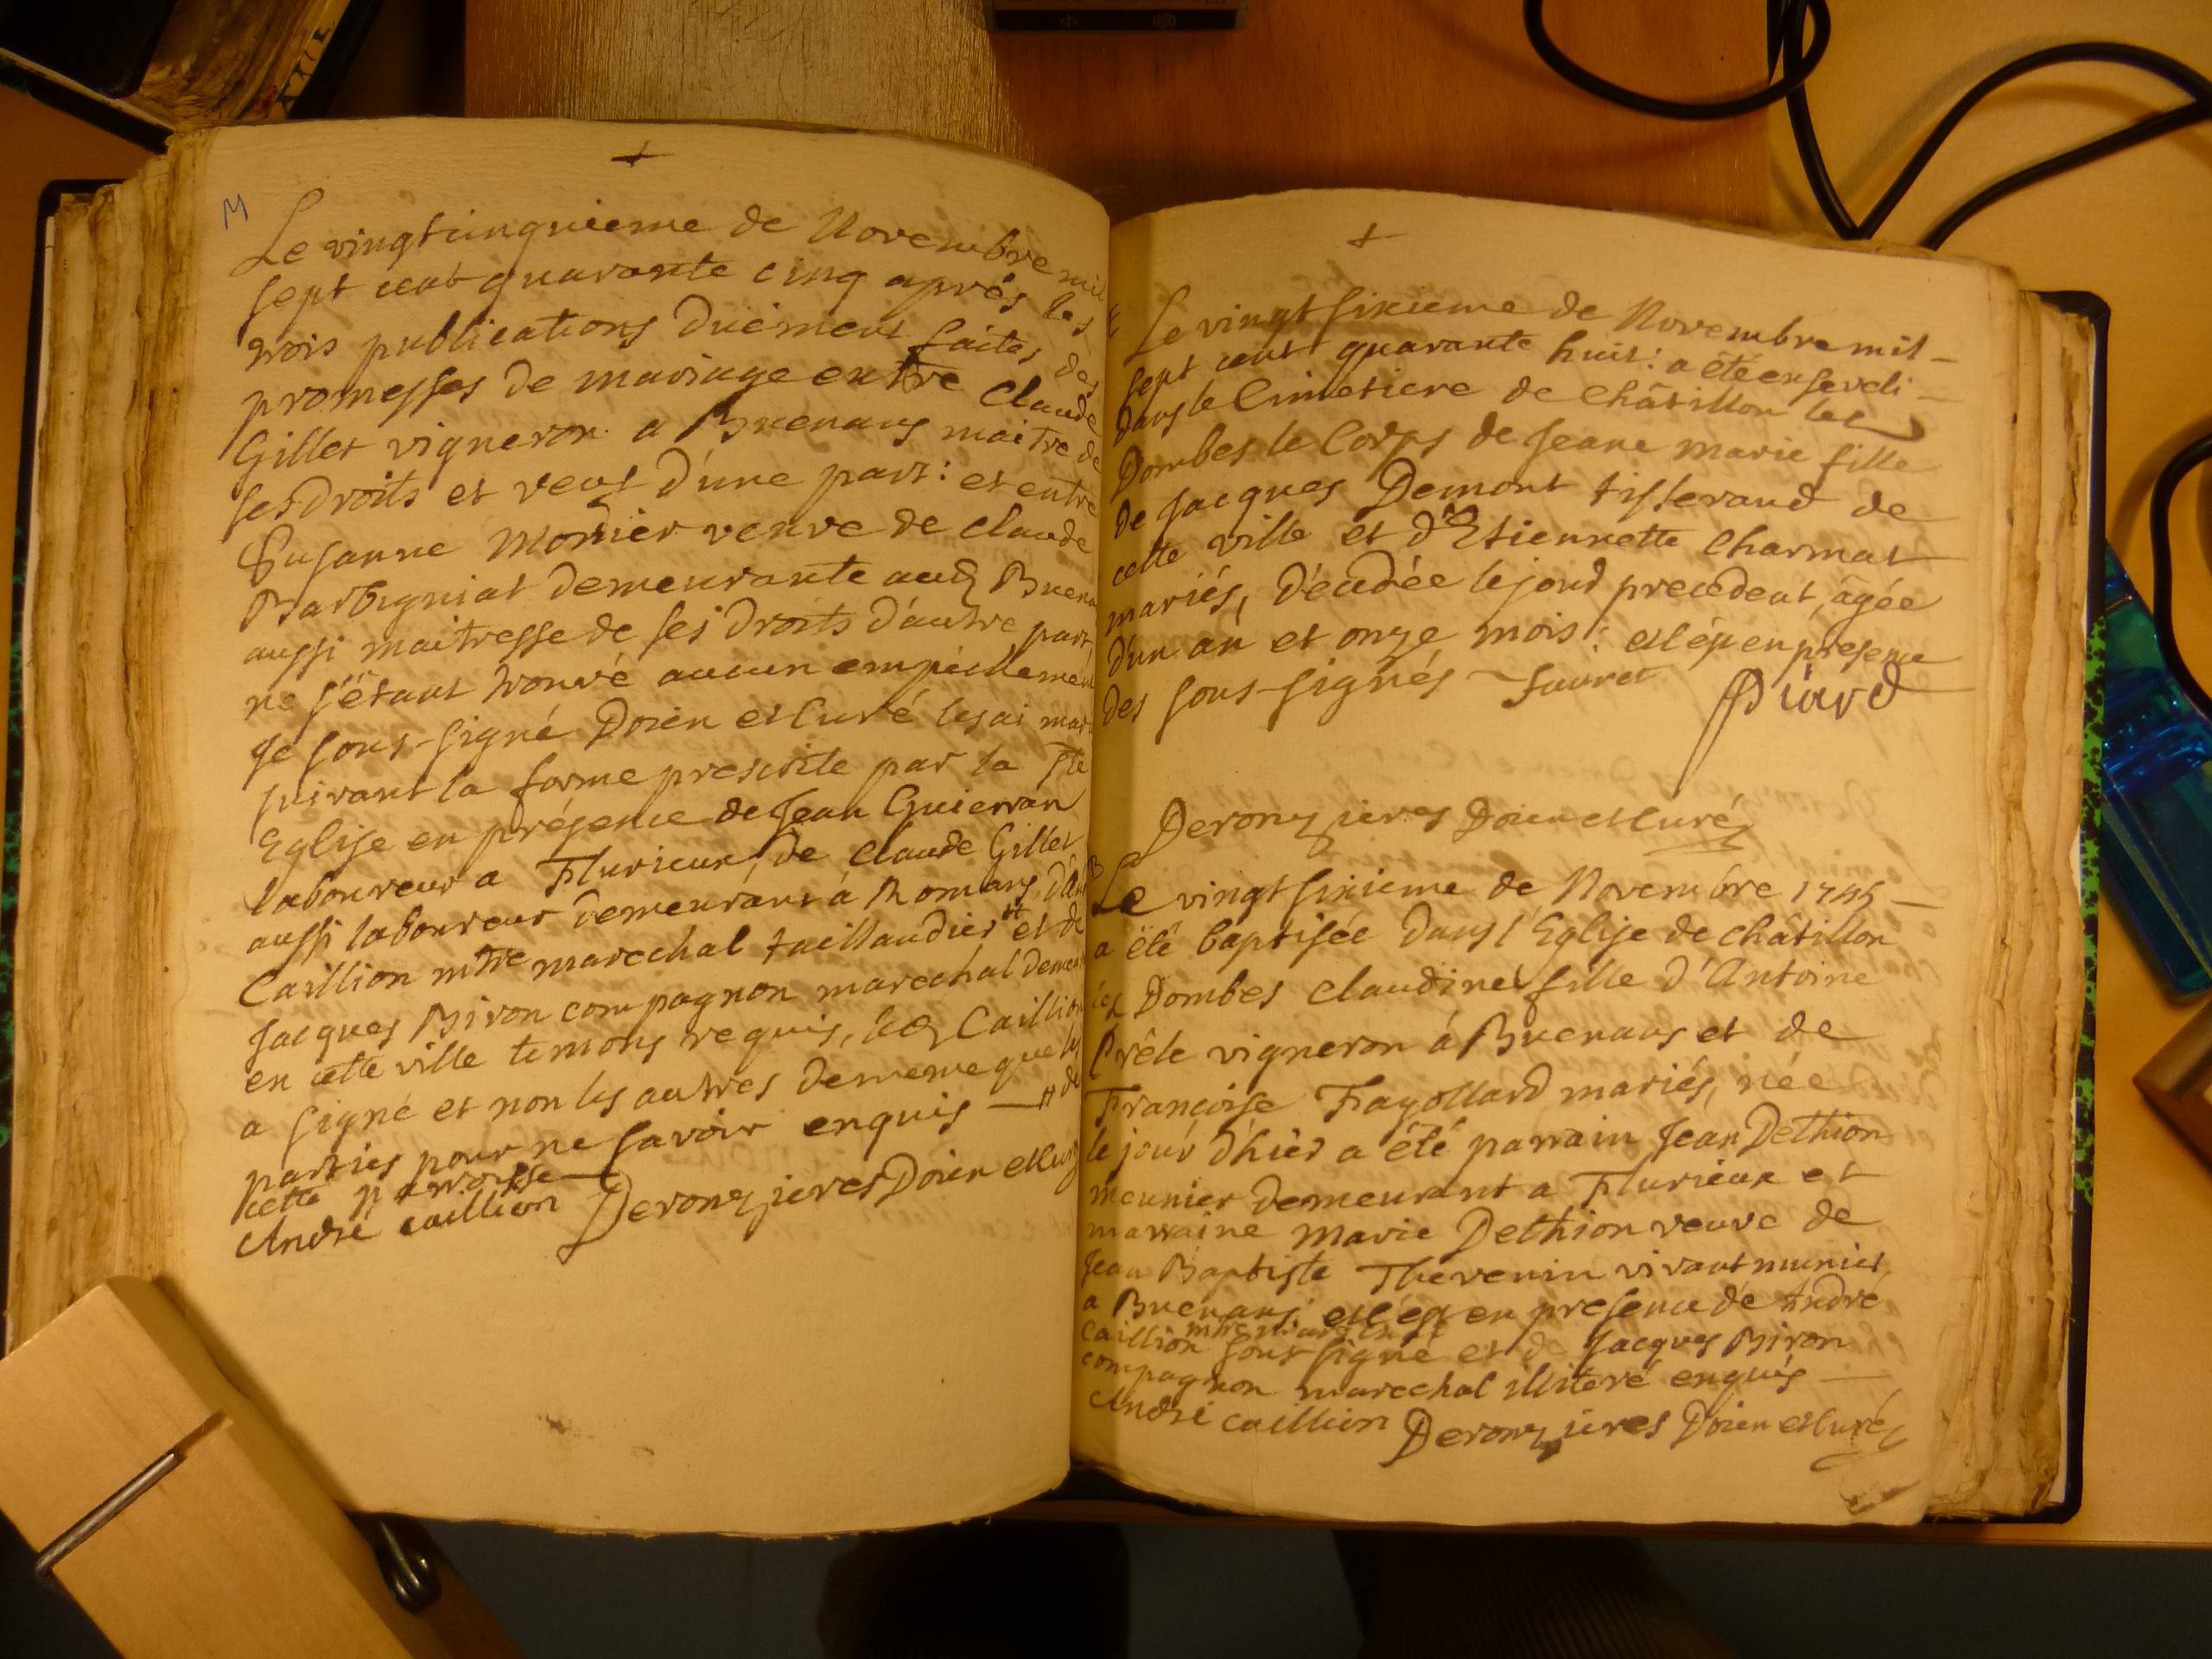 M
Le vingtcinquieme de Novembre mil
sept cent quarante cinq aprés les
trois publications düement faites des
promesses de mariage entre Claude
Gillet vigneron a Buenans maitre de
ses droits et veuf d'une part: et entre
Susanne Monier veuve de claude
Barbigniat demeurante aud Buena
aussi maitresse de ses droits d'autre part
ne s'étant trouvé aucun empéchemén
Je sous-signé Doïen et Curé les ai mar
suivant la forme prescrite par la Ste
Eglise en présence de Jean Guierrán
laboureur a Flurieux, de Claude Gillet
aussi laboureur demeurant á Romans d'
Caillion mtre marechal taillandier # et de
Jacques Biron compagnon marechal demeu
en cette ville temons requis, led Caillion
a signé et non les autres dememe que les
parties pour ne savoir enquis — # de
cette parroisse
André caillion Deronzieres Doïen et Curé
Le vingt sixieme de Novembre mil -
sept cent quarante huit: a été enseveli -
dans le Cimetiere de Châtillon les
Dombes le Corps de Jeane Marie fille
de Jacques Demont tisserand de
cette ville et d'Etiennette Charmat
mariés, décedée le jour precedent, âgée
d'un an et onze mois: et l'ép en présence
des sous-signés Fauret Piard
Deronzieres Doïen et Curé
B
Le vingt sixieme de Novembre 1745 -
a été baptisée dans l'Eglise de châtillon
les Dombes Claudine fille d'Antoine
Prêle vigneron á Buenans et de
Françoise Fayollard mariés, née
le jour d'hier a été parrain Jean Dethion
meunier demeurant a Flurieux et
marraine Marie Dethion veuve de
Jean Baptiste Thevenin vivant munier
a Buenans: et l'ép en presence de André
Caillion mtre marechal sous signé et de Jacques Biron
compagnon marechal illiteré enquis —
André caillion Deronzieres Doïen et Curé